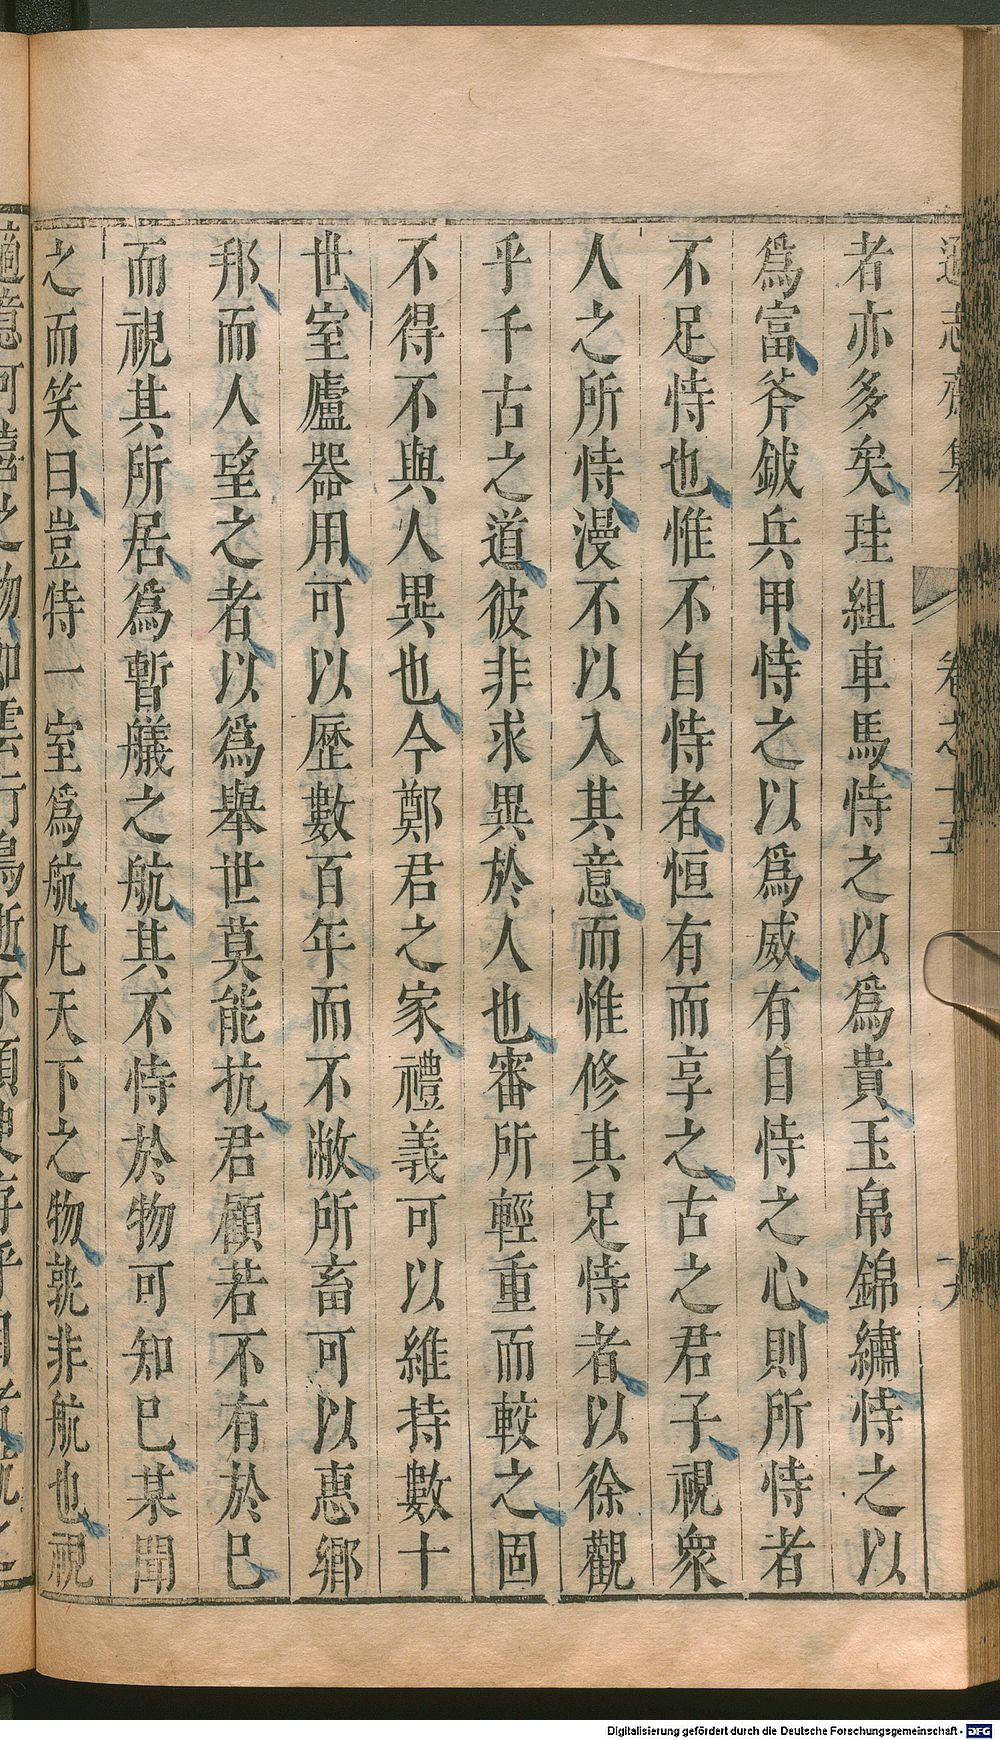 者亦多矣珪組車馬恃之以爲貴玉帛錦繡恃之以
爲富斧鉞兵甲恃之以爲威有自恃之心則所恃者
不足恃也惟不自恃者恒有而享之古之君子視衆
人之所恃漫不以入其意而惟修其足恃者以徐觀
乎千古之道彼非求異於人也審所輕重而較之固
不得不與人異也今鄭君之家禮義可以維持數十
世室廬器用可以歷數百年而不敝所畜可以惠鄉
邦而人望之者以爲舉世莫能抗君顧若不有於巳
而視其所居爲暫艤之航其不恃於物可知巳某聞
之而笑曰豈恃一室爲航凡天下之物孰非航也視
Digitalisierung gefördert durch die Deutsche Forschungsgemeinschaft - DFG